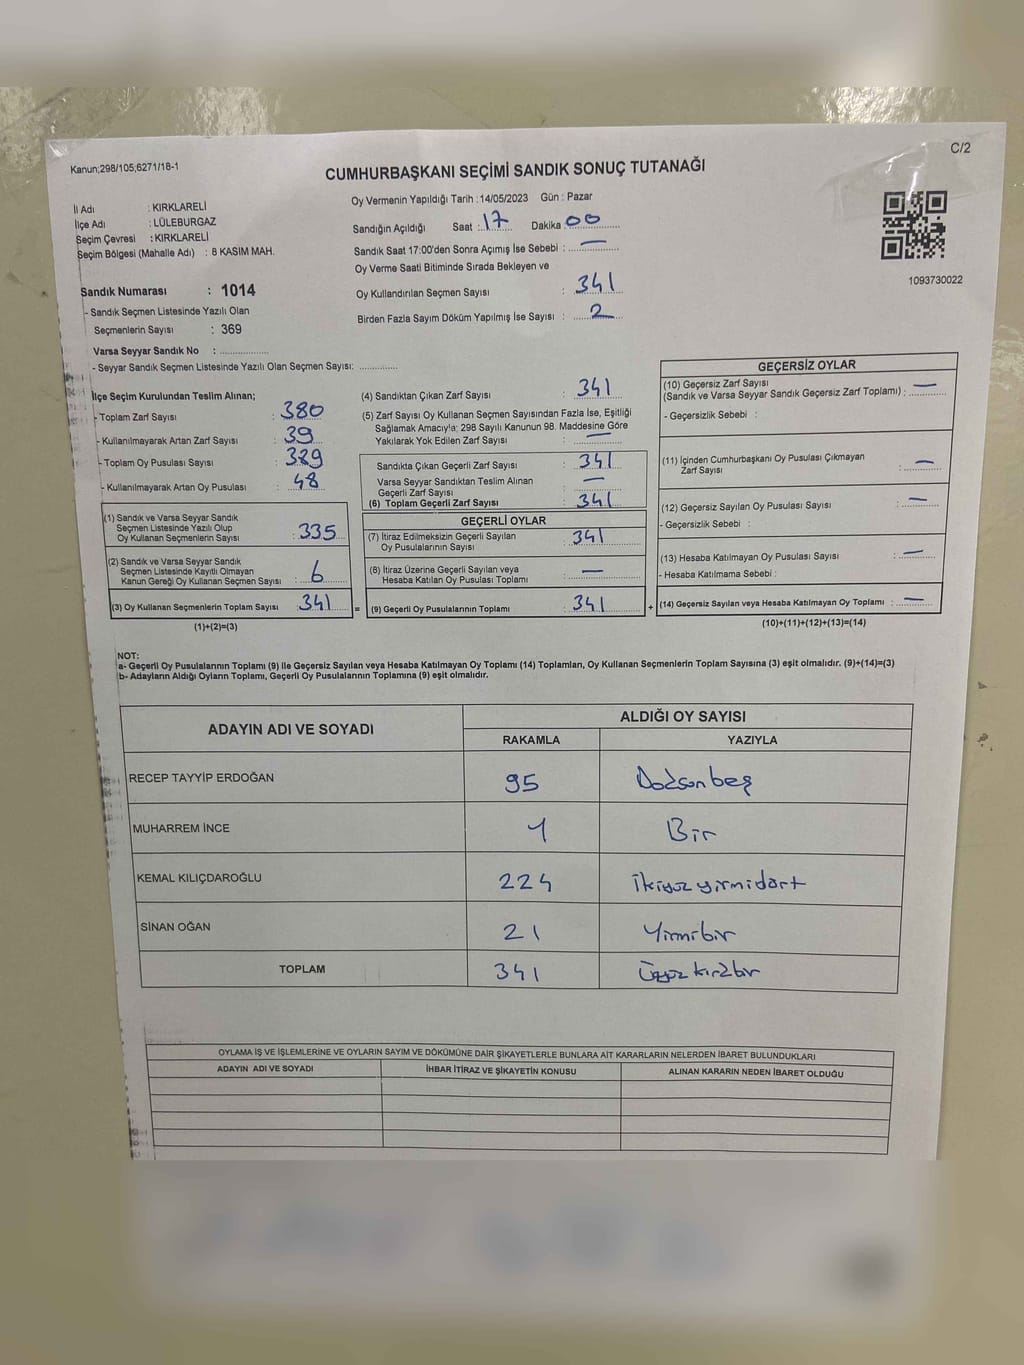 Kanun;298/105;6271/18-1
C/2
CUMHURBAŞKANI SEÇİMİ SANDIK SONUÇ TUTANAĞI
İl Adı : KIRKLARELİ
İlçe Adı : LÜLEBURGAZ
Seçim Çevresi : KIRKLARELİ
Seçim Bölgesi (Mahalle Adı) : 8 KASIM MAH.
Sandık Numarası : 1014
- Sandık Seçmen Listesinde Yazılı Olan
Seçmenlerin Sayısı : 369
Varsa Seyyar Sandık No : ..................
- Seyyar Sandık Seçmen Listesinde Yazılı Olan Seçmen Sayısı: ..............
Oy Vermenin Yapıldığı Tarih : 14/05/2023 Gün : Pazar
Sandığın Açıldığı Saat : 17 Dakika : 00
Sandık Saat 17:00'den Sonra Açımış İse Sebebi : —
Oy Verme Saati Bitiminde Sırada Bekleyen ve
Oy Kullandırılan Seçmen Sayısı : 341
Birden Fazla Sayım Döküm Yapılmış İse Sayısı : 2
1093730022
İlçe Seçim Kurulundan Teslim Alınan;
- Toplam Zarf Sayısı : 380
- Kullanılmayarak Artan Zarf Sayısı : 39
- Toplam Oy Pusulası Sayısı : 389
- Kullanılmayarak Artan Oy Pusulası : 48
(1) Sandık ve Varsa Seyyar Sandık
Seçmen Listesinde Yazılı Olup
Oy Kullanan Seçmenlerin Sayısı : 335
(2) Sandık ve Varsa Seyyar Sandık
Seçmen Listesinde Kayıtlı Olmayan
Kanun Gereği Oy Kullanan Seçmen Sayısı : 6
(3) Oy Kullanan Seçmenlerin Toplam Sayısı : 341
(1)+(2)=(3)
(4) Sandıktan Çıkan Zarf Sayısı : 341
(5) Zarf Sayısı Oy Kullanan Seçmen Sayısından Fazla İse, Eşitliği
Sağlamak Amacıyla; 298 Sayılı Kanunun 98. Maddesine Göre
Yakılarak Yok Edilen Zarf Sayısı : —
Sandıkta Çıkan Geçerli Zarf Sayısı : 341
Varsa Seyyar Sandıktan Teslim Alınan
Geçerli Zarf Sayısı : —
(6) Toplam Geçerli Zarf Sayısı : 341
GEÇERLİ OYLAR
(7) İtiraz Edilmeksizin Geçerli Sayılan
Oy Pusulalarının Sayısı : 341
(8) İtiraz Üzerine Geçerli Sayılan veya
Hesaba Katılan Oy Pusulası Toplamı : —
= (9) Geçerli Oy Pusulalarının Toplamı : 341
GEÇERSİZ OYLAR
(10) Geçersiz Zarf Sayısı
(Sandık ve Varsa Seyyar Sandık Geçersiz Zarf Toplamı) : —
- Geçersizlik Sebebi :
(11) İçinden Cumhurbaşkanı Oy Pusulası Çıkmayan
Zarf Sayısı : —
(12) Geçersiz Sayılan Oy Pusulası Sayısı : —
- Geçersizlik Sebebi :
(13) Hesaba Katılmayan Oy Pusulası Sayısı : —
- Hesaba Katılmama Sebebi :
+ (14) Geçersiz Sayılan veya Hesaba Katılmayan Oy Toplamı : —
(10)+(11)+(12)+(13)=(14)
NOT:
a- Geçerli Oy Pusulalarının Toplamı (9) ile Geçersiz Sayılan veya Hesaba Katılmayan Oy Toplamı (14) Toplamları, Oy Kullanan Seçmenlerin Toplam Sayısına (3) eşit olmalıdır. (9)+(14)=(3)
b- Adayların Aldığı Oyların Toplamı, Geçerli Oy Pusulalarının Toplamına (9) eşit olmalıdır.
ADAYIN ADI VE SOYADI ALDIĞI OY SAYISI
RAKAMLA YAZIYLA
RECEP TAYYİP ERDOĞAN 95 Doksanbeş
MUHARREM İNCE 1 Bir
KEMAL KILIÇDAROĞLU 224 İkiyüz yirmidört
SİNAN OĞAN 21 Yirmibir
TOPLAM 341 Üçyüz kırkbir
OYLAMA İŞ VE İŞLEMLERİNE VE OYLARIN SAYIM VE DÖKÜMÜNE DAİR ŞİKAYETLERLE BUNLARA AİT KARARLARIN NELERDEN İBARET BULUNDUKLARI
ADAYIN ADI VE SOYADI İHBAR İTİRAZ VE ŞİKAYETİN KONUSU ALINAN KARARIN NEDEN İBARET OLDUĞU